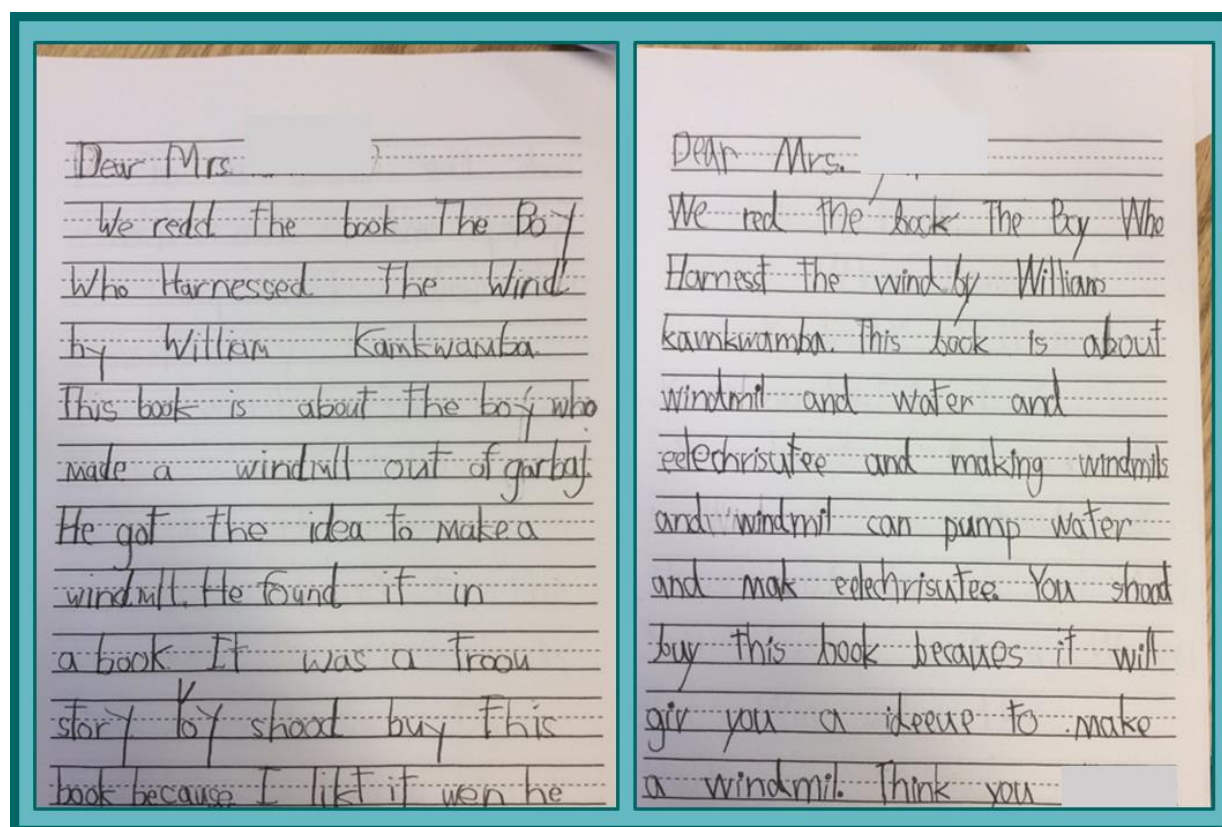 Dear Mrs.
We redd the book The Boy
Who Harnessed The Wind
by William Kamkwamba.
This book is about the boy who
made a windmill out of garbaj.
He got the idea to make a
windmill. He found it in
a book. It was a troou
story. Yoy shood buy this
book because I likt it wen he
Dear Mrs.
We red the book The Boy Who
Harnest the wind by William
kamkwamba. This book is about
windmil and water and
eelechrisutee and making windmils
and windmil can pump water
and mak eelechrisutee. You shood
buy this book becaues it will
giv you a ideeue to make
a windmil. Think you